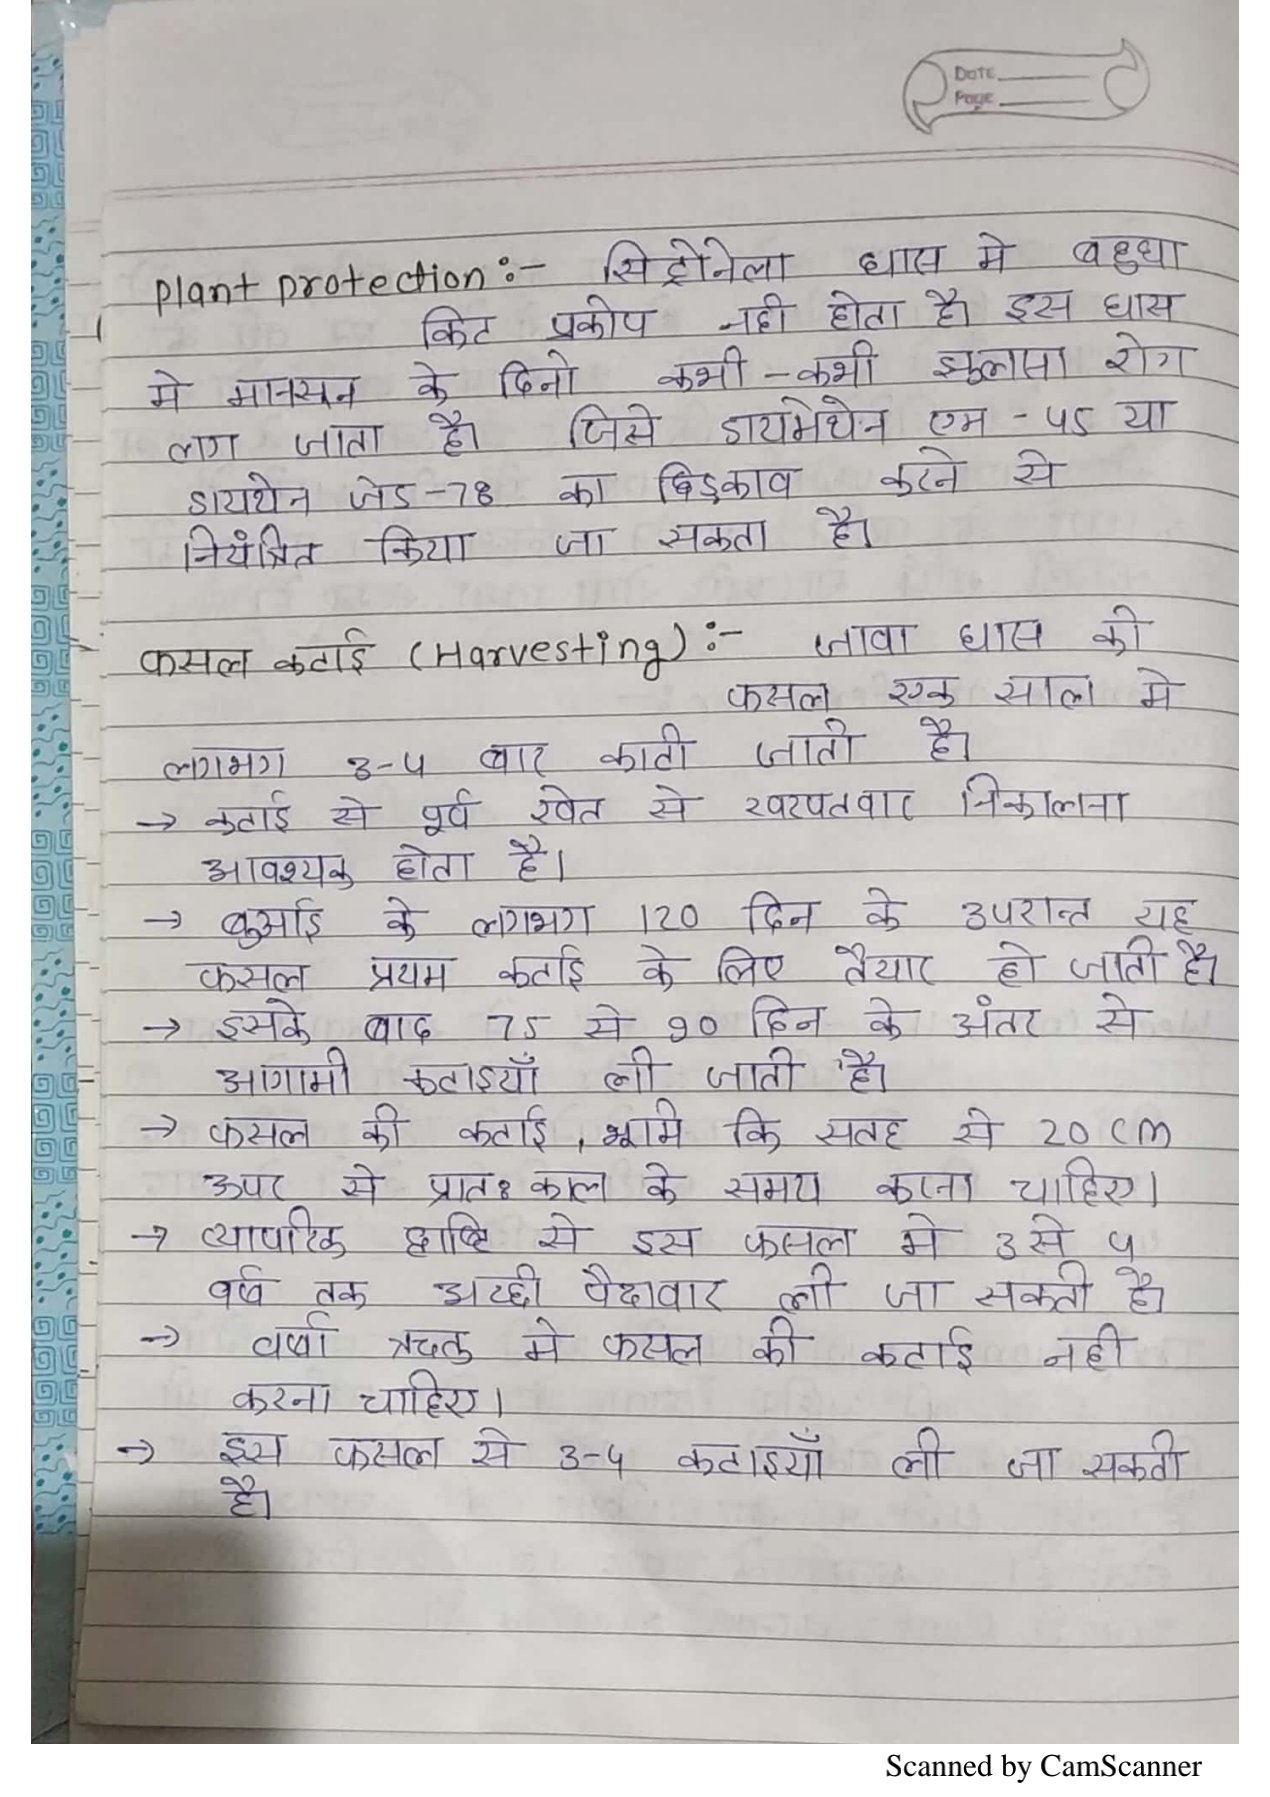 DATE
Page
Plant protection :- सिट्रोनेला घास मे बहुधा
किट प्रकोप नही होता है। इस घास
मे मानसून के दिनो कभी - कभी झुलसा रोग
लग जाता है। जिसे डायमेथेन एम - 45 या
डायथेन जेड -78 का छिड़काव करने से
नियंत्रित किया जा सकता है।
फसल कटाई (Harvesting) :- जावा घास की
फसल एक साल मे
लगभग 3-4 बार काटी जाती है।
→ कटाई से पूर्व खेत से खरपतवार निकालना
आवश्यक होता है।
→ बुआई के लगभग 120 दिन के उपरान्त यह
फसल प्रथम कटाई के लिए तैयार हो जाती है।
→ इसके बाद 75 से 90 दिन के अंतर से
आगामी कटाइयाँ ली जाती है।
→ फसल की कटाई, भूमि कि सतह से 20 cm
ऊपर से प्रातः काल के समय करना चाहिए।
→ व्यापरिक दृष्टि से इस फसल मे 3 से 4
वर्ष तक अच्छी पैदावार ली जा सकती है।
→ वर्षा ऋतु मे फसल की कटाई नही
करना चाहिए।
→ इस फसल से 3-4 कटाइयाँ ली जा सकती
है।
Scanned by CamScanner